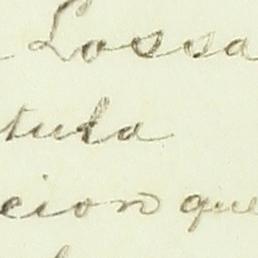 Lossa
tula
cion que